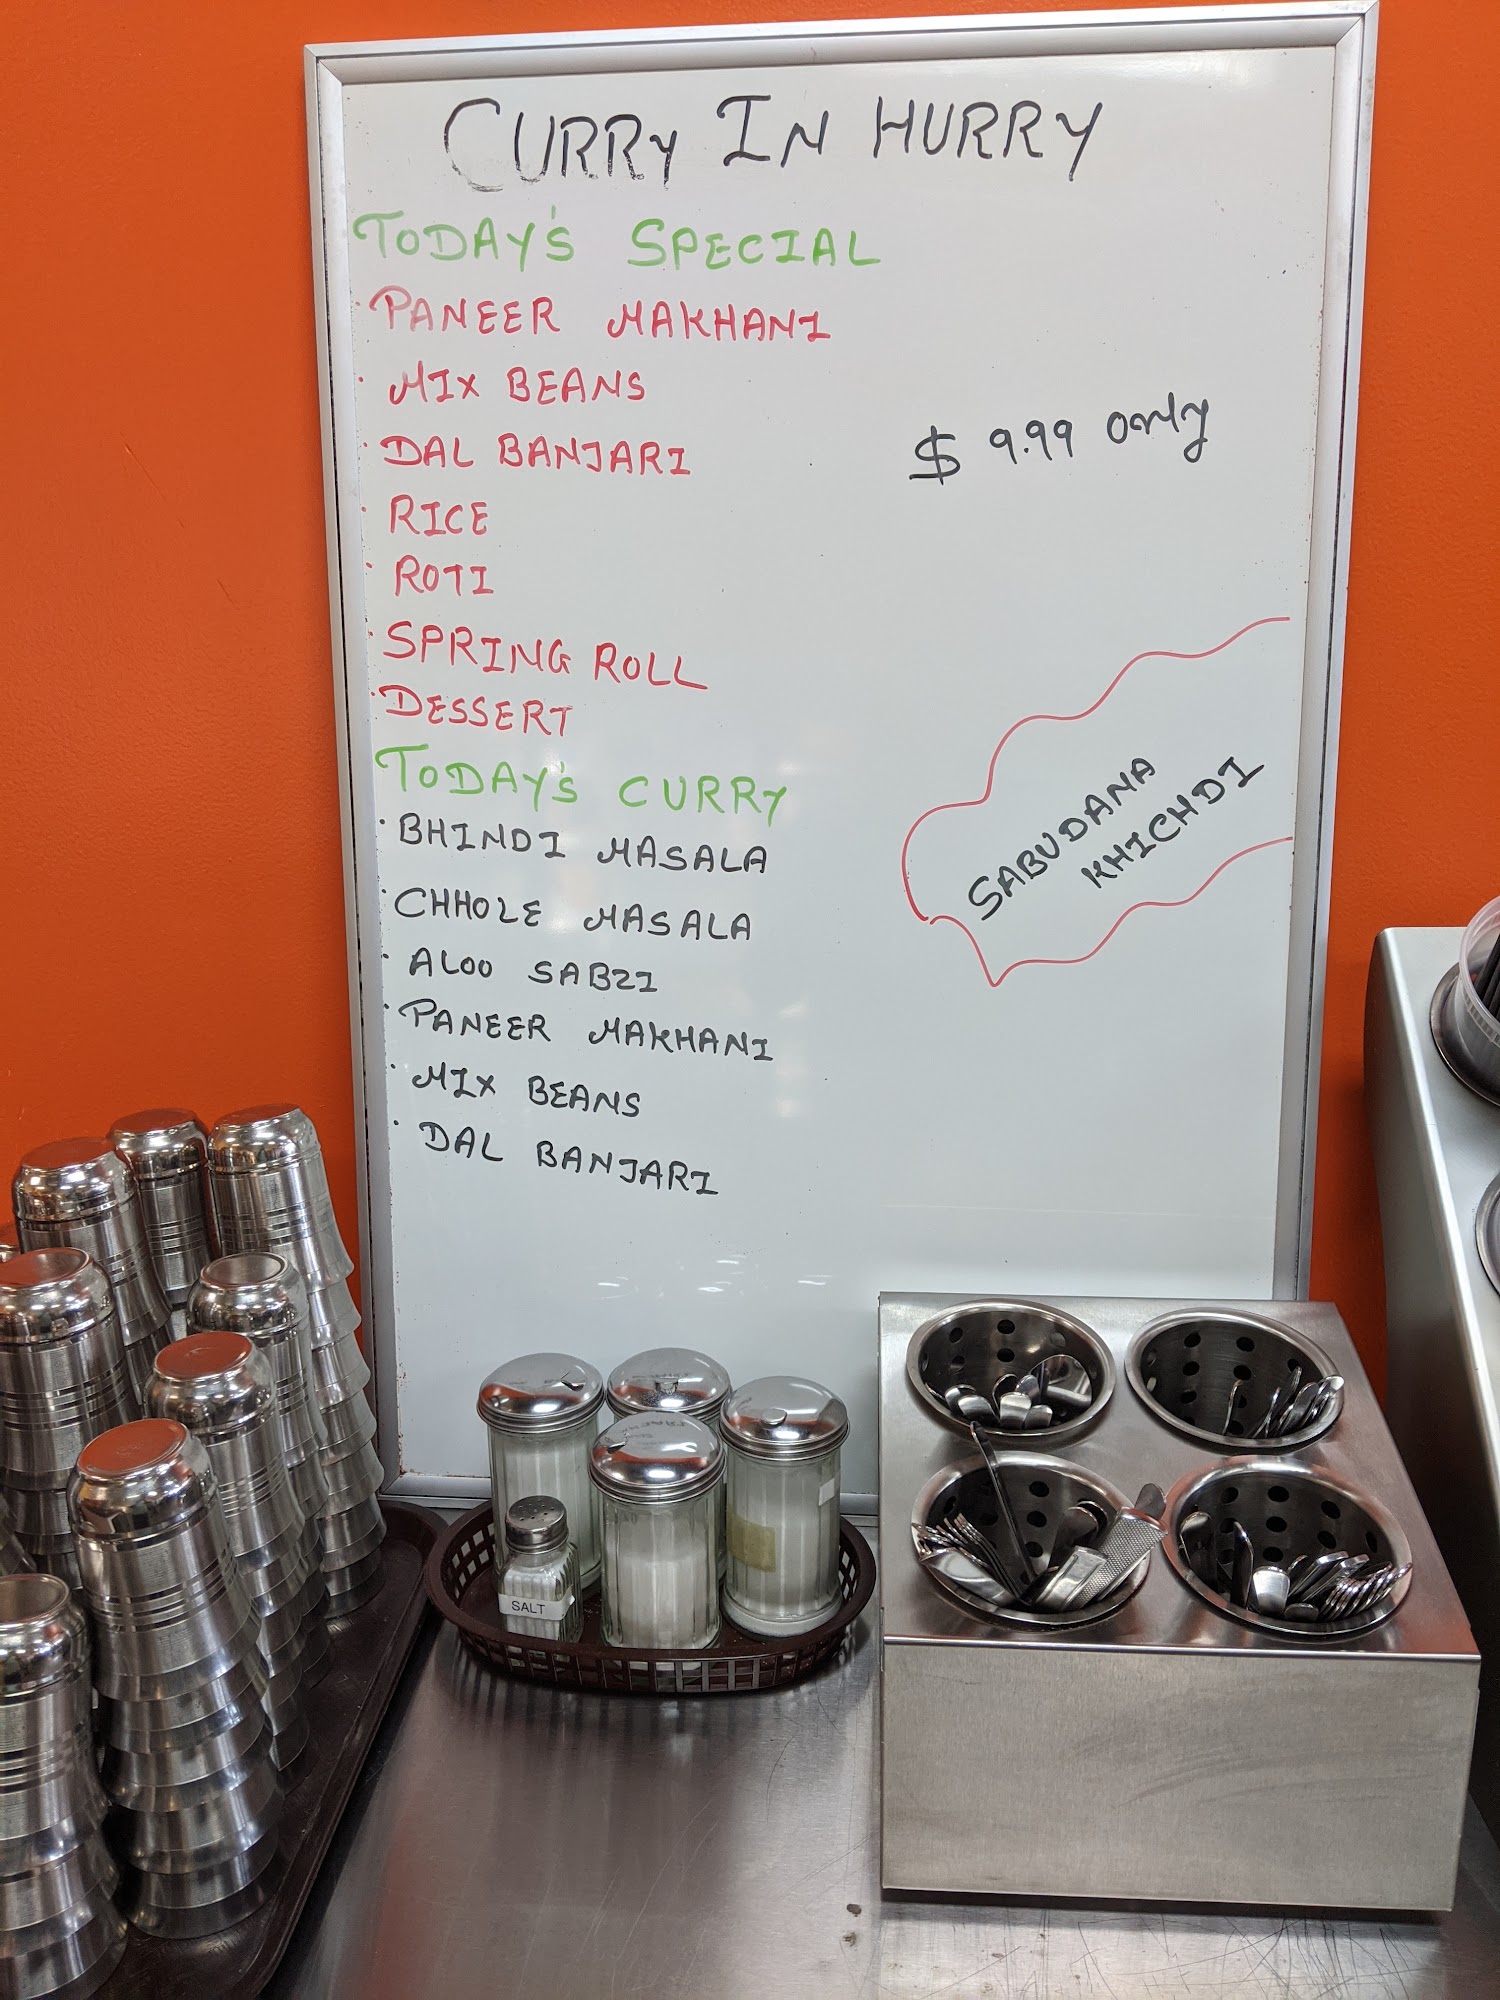 CURRY IN HURRY
TODAY'S SPECIAL
· PANEER MAKHANI
· MIX BEANS
· DAL BANJARI
· RICE
· ROTI
· SPRING ROLL
· DESSERT
$ 9.99 only
TODAY'S CURRY
· BHINDI MASALA
· CHHOLE MASALA
· ALOO SABZI
· PANEER MAKHANI
· MIX BEANS
· DAL BANJARI
SABUDANA
KHICHDI
SALT